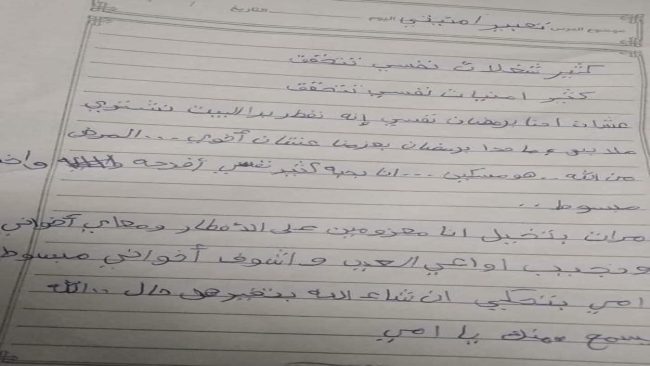 موضوع الدرس تعبير / امنيتي اليوم التاريخ /
كثير شغلات نفسي تتحقق
كثير امنيات نفسي تتحقق
عشان احنا برمضان نفسي إنه نفطر برا البيت نشتوي
ملا بنو وما حدا برمضان بعزمنا عشان أخوي ... المرض
من الله .. هو مسكين ... انا بحبه كثير نفسي أفرحه واخد
مبسوط ..
مرات بتخيل انا معزومين على الافطار ومعاي أخواني
وبجيب اواعي العيد واشوف أخواني مبسوط
امي بتحكي ان شاء الله بتغير هل حال .. الله
يسمع منك يا امي